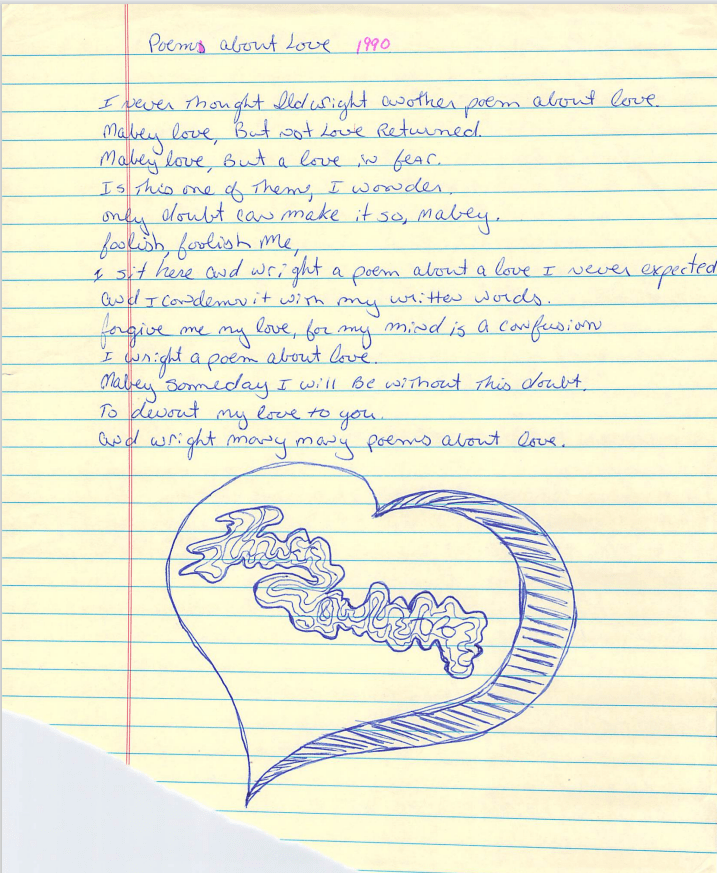 Poems about Love 1990
I never thought Ild wright another poem about love.
Mabey love, But not Love Returned.
Mabey love, But a love in fear.
Is this one of Them, I wonder.
only doubt can make it so, Mabey.
foolish, foolish Me,
I sit here and wright a poem about a love I never expected
and I condemn it with my written words.
forgive me my love, for my mind is a confusion
I wright a poem about love.
Mabey someday I will Be without This doubt.
To devout my love to you.
and wright many many poems about love.